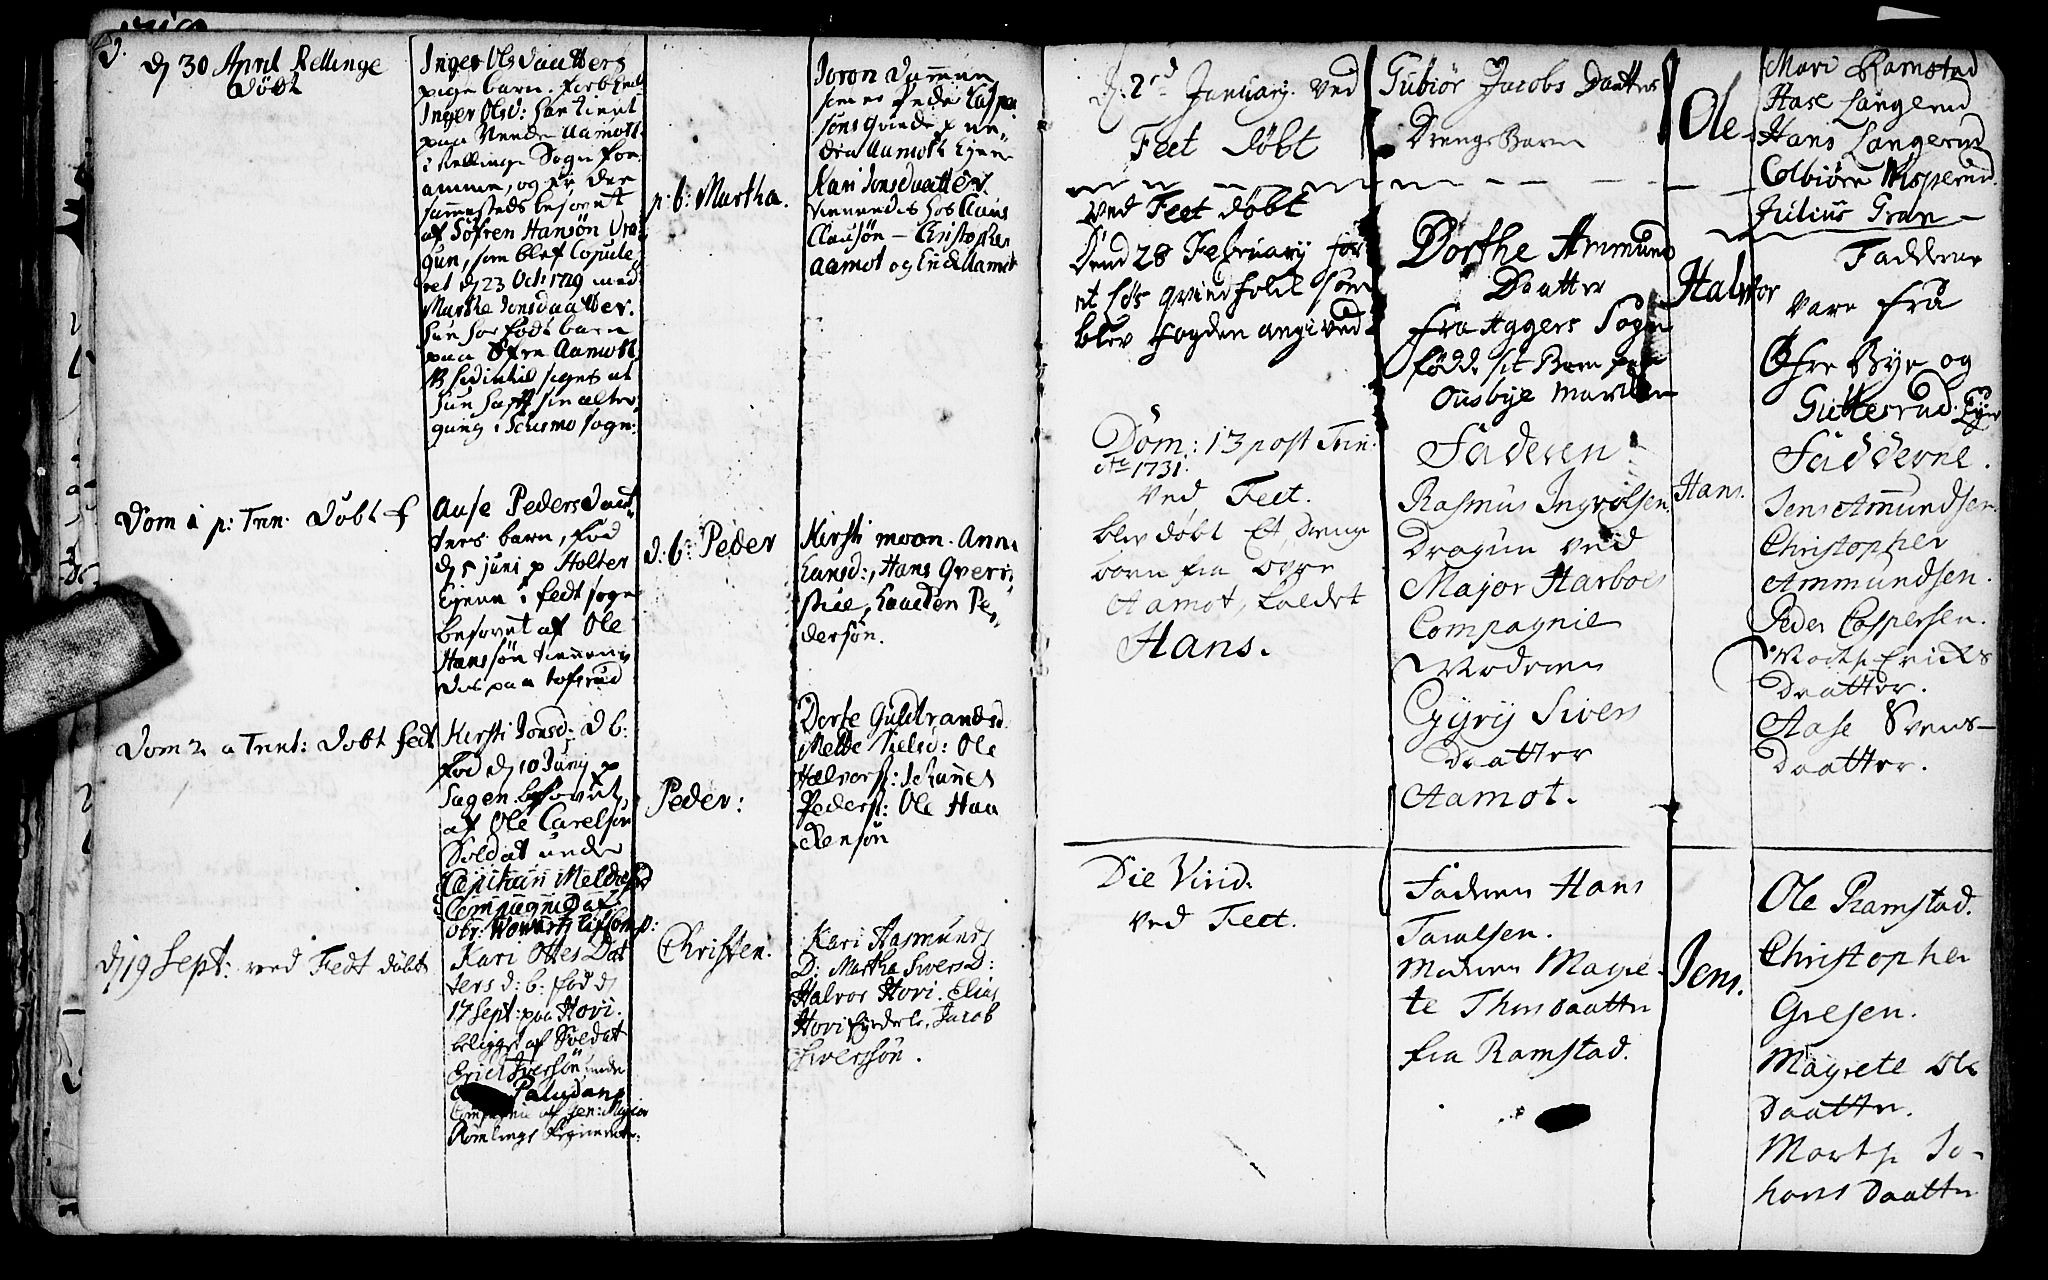 d. 30 April Rellinge
Døbt
Inger Olsdaatters
pige barn.
Inger Olsd: har tient
paa Nendre Aamott
i Rellinge Sogn for
amme, og er der
sammesteds besovet
af Søfren Hansøn Dra
gun, som blef Copule
ret d. 23 Oct: 1729 med
Marthe Jonsdaatter.
hun har født barn
paa Øfre Aamott
siges at
hun haft sin alter
gang i Scusmo sogn:
p: b: Martha.
Joron
som er Peder Caspe
søns qvinde p ne
dra Aamoth Ejere
Kari Jonsdaatter.
tiennendis hos Claus
Clausøn – Christopher
Aamot og Erick Aamot
Dom 1 p: Trin. Døbt f
Aase Pedersdaat
ters barn, fød
d. 5 juni p Holter
Ejene i fedt sogn
besovet af Ole
Hanssøn tiennen
des paa tofsrud
d: b: Peder
Kirsti moon. Anne
Hansd:, Hans Gverr
stue, Halvden Pe
dersøn.
Dom 2 a Trnt: Døbt fedt
Kirsti Jonsd: d b:
fød d. 10 Junij p
Hagen besovet
af Ole Carelsøn
Soldat under
Capitain
Compagnie af
Obr:
Peder:
Dorte Guldbrandsd
Mette Nielsd: Ole
Halvors: Johannes
Peders: Ole Haa
kensøn
d. 19 Sept: ved Fedt døbt
Kari Ottes Dat
ters d: b: fød d
17 Sept: paa Hovi.
beligget af Soldat
Erick Iversøn under
Paludans
Compagnie af Gen: Major
Rømlings Regimente:
Christen.
Kari Rasmunds
D: Martha Sivers D:
Halvor Hovi. Elias
Hovi Jacob
Siverssøn.
D: 2d January. ved
Feet døbt
Gubiør Jacobs Daatters
Drenge Barn
Ole
Mari Ramstad
Hase Langerud
Hans Langerud
Colbiørn Asperud.
Julius Gran –
ved Feet døbt
Dend 28 February for
et løs qvindfolk som
blev fogden angived
Dorthe Ammund
Daatter
fra Aggers Sogn
fødde sit Barn paa
Ousbye Marken
Halvor
Faddene
vare fra
Øfre Bye og
Gutterud Eye
Dom: 13 post Trin:
Ao 1731.
Ved Feet.
blev døbt Et drenge
barn fra øvre
Aamot, kaldet
Hans.
Faderen
Rasmus Ingvolsen
Dragun ved
Major Harboes
Compagnie
Moderen
Gyrij Sivers
Daatter
Aamot.
Hans.
Fadderne.
Jens Ammundsen.
Christopher
Ammundsen.
Peder Caspersen.
Marthe Ericks
Daatter.
Aase Svens–
Daatter.
Die Virid.
ved Feet.
Fadren Hans
Taralsen.
Modren Magre-
te Thors daatter
fra Ramstad.
Jens.
Ole Ramstad.
Christopher
Gresen.
Magrete Ols
Daatter.
Marthe Jo-
hans Daatter